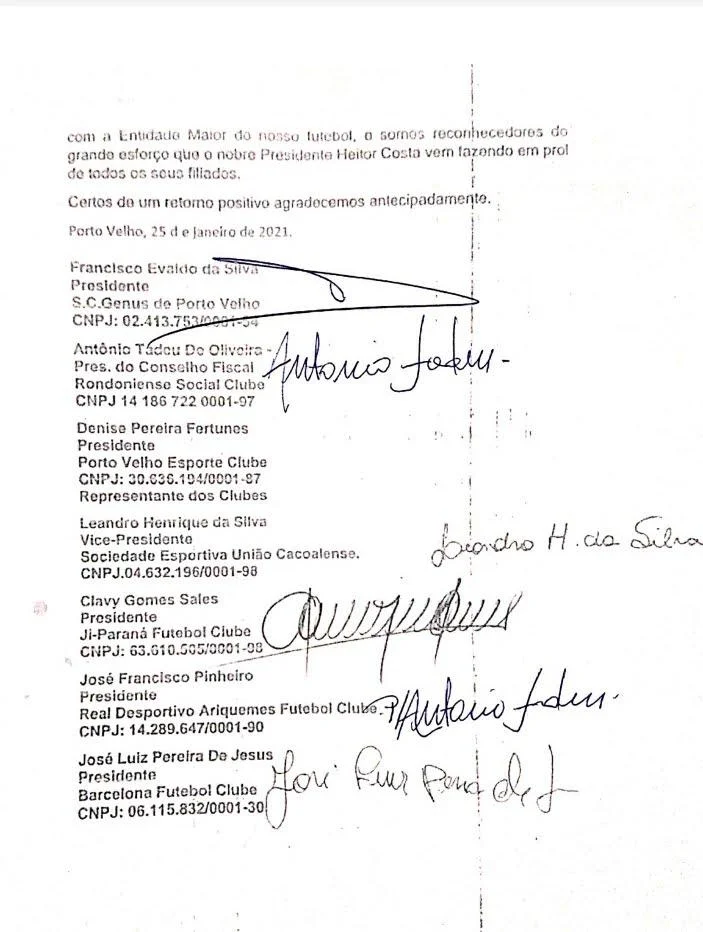 com a Entidade Maior do nosso futebol, o somos reconhecedores do
grande esforço que o nobre Presidente Heitor Costa vem fazendo em prol
de todos os seus filiados.
Certos de um retorno positivo agradecemos antecipadamente.
Porto Velho, 25 d e janeiro de 2021.
Francisco Evaldo da Silva
Presidente
S.C.Genus de Porto Velho
CNPJ: 02.413.753/0001-54
Antônio Tadeu De Oliveira -
Antonio Tadeu -
Pres. do Conselho Fiscal
Rondoniense Social Clube
CNPJ 14 186 722 0001-97
Denise Pereira Fertunes
Presidente
Porto Velho Esporte Clube
CNPJ: 30.636.194/0001-87
Representante dos Clubes
Leandro Henrique da Silva
Vice-Presidente
Leandro H. da Silva
Sociedade Esportiva União Cacoalense.
CNPJ.04.632.196/0001-98
Clavy Gomes Sales
Presidente
Ji-Paraná Futebol Clube
CNPJ: 63.610.505/0001-98
José Francisco Pinheiro
Presidente
Real Desportivo Ariquemes Futebol Clube.
P/ Antonio Tadeu.
CNPJ: 14.289.647/0001-90
José Luiz Pereira De Jesus
Presidente
Barcelona Futebol Clube
José Luiz Pereira de J
CNPJ: 06.115.832/0001-30